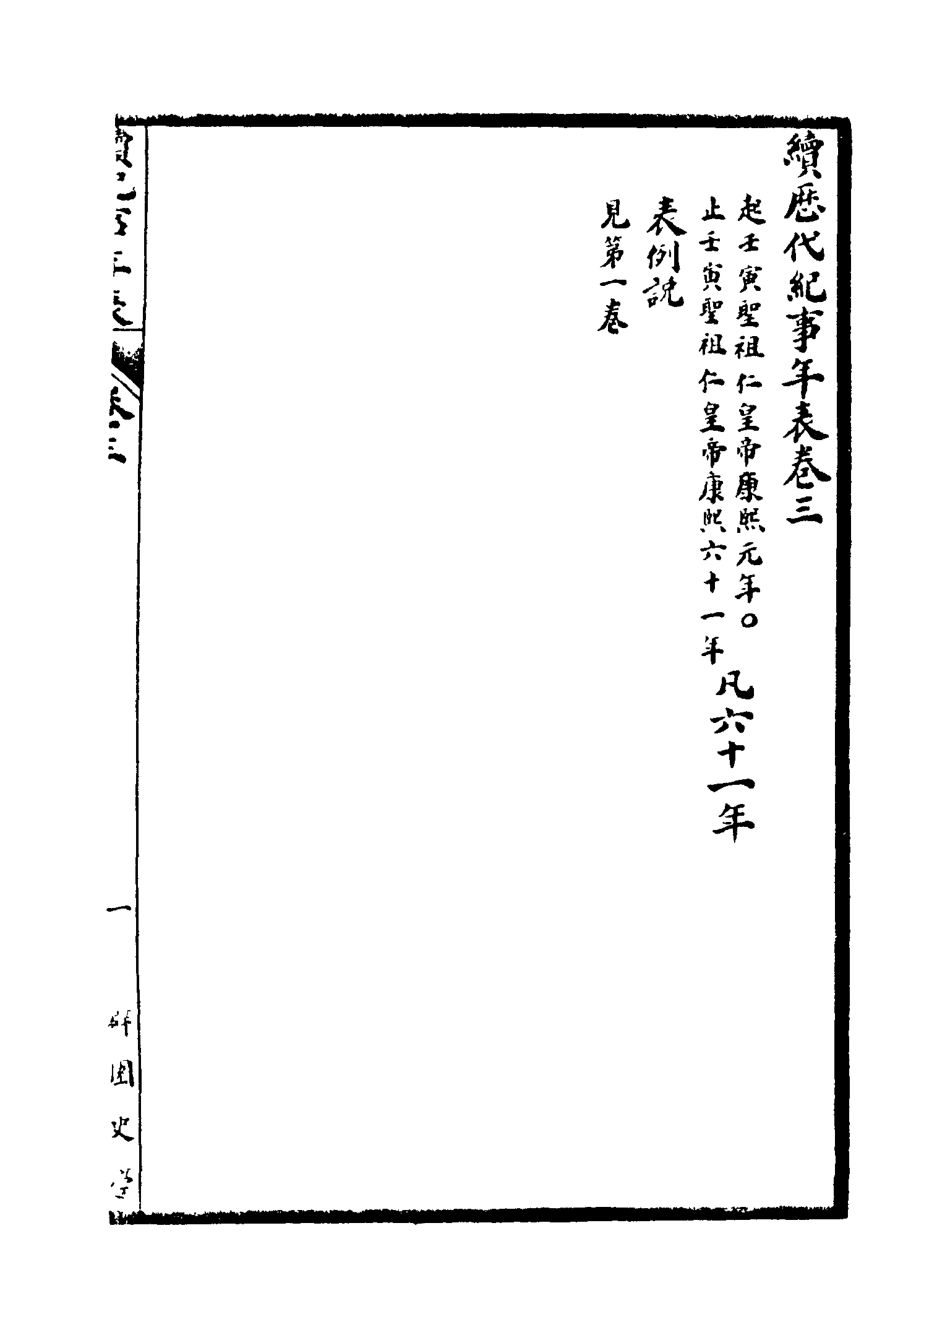 續歷代紀事年表卷三
起壬寅聖祖仁皇帝康熙元年〇
止壬寅聖祖仁皇帝康熙六十一年
凡六十一年
表例說
見第一卷
續紀事年表
卷三
一
史學